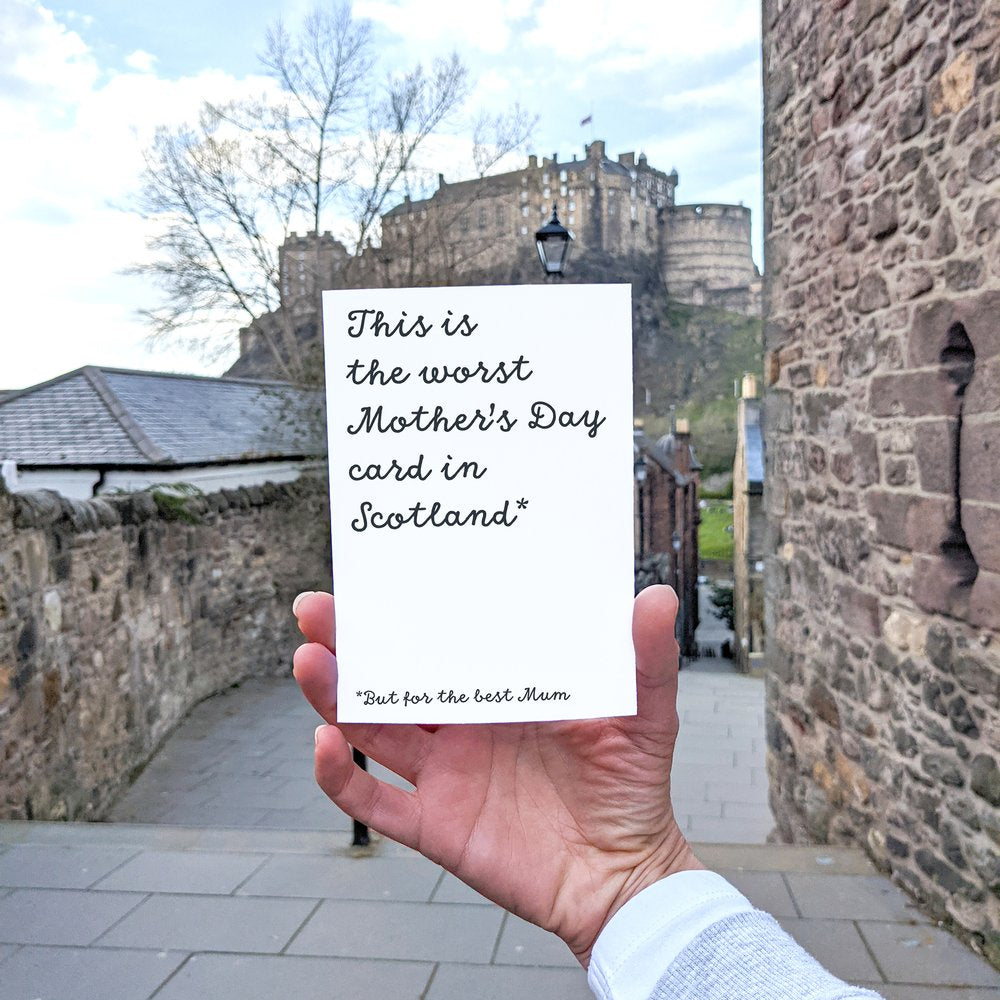 This is
the worst
Mother's Day
card in
Scotland*
*But for the best Mum